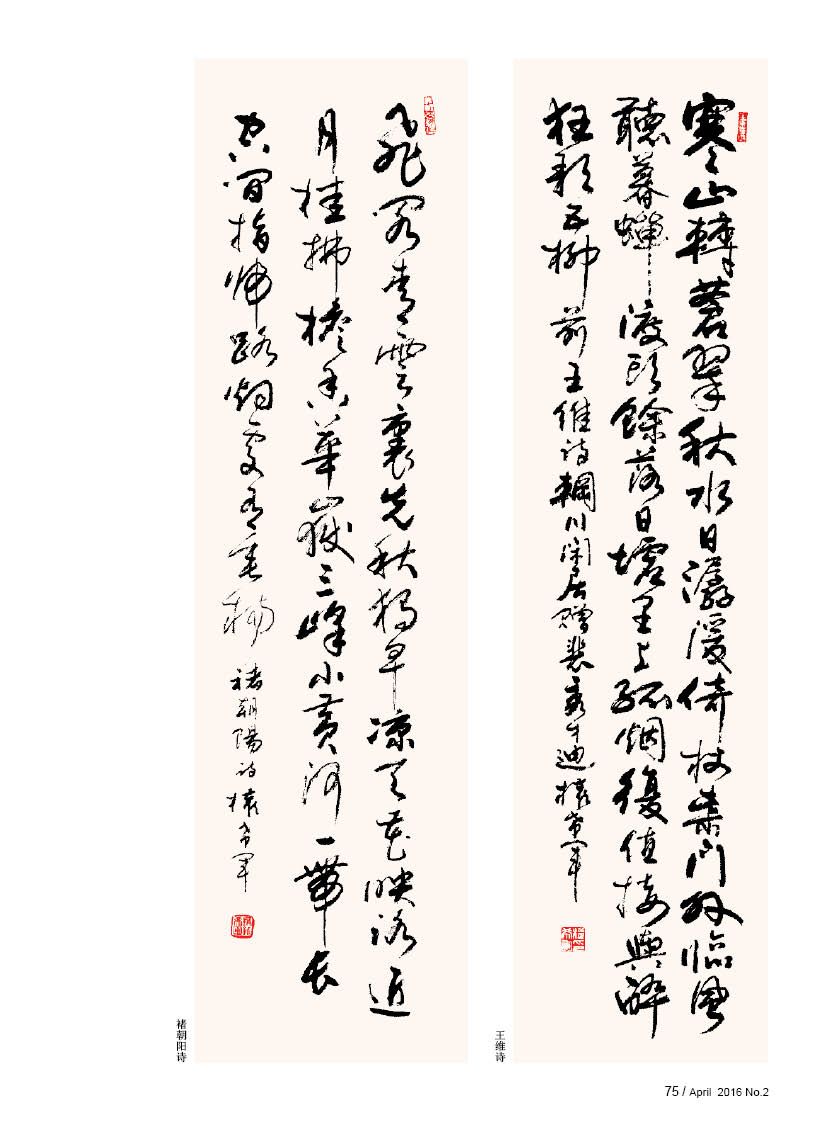 寒山轉蒼翠秋水日潺湲倚杖柴門外臨風
聽暮蟬渡頭餘落日墟里上孤烟復值接輿醉
狂歌五柳前 王維詩輞川闲居贈裴秀才迪
王维诗
飛閣青雲裏先秋獨早凉天花映近
月桂拂檐香華嶽三峰小黄河一帶長
空間指歸路烟有垂楊 褚朝陽詩
褚朝阳诗
75 / April 2016 No.2